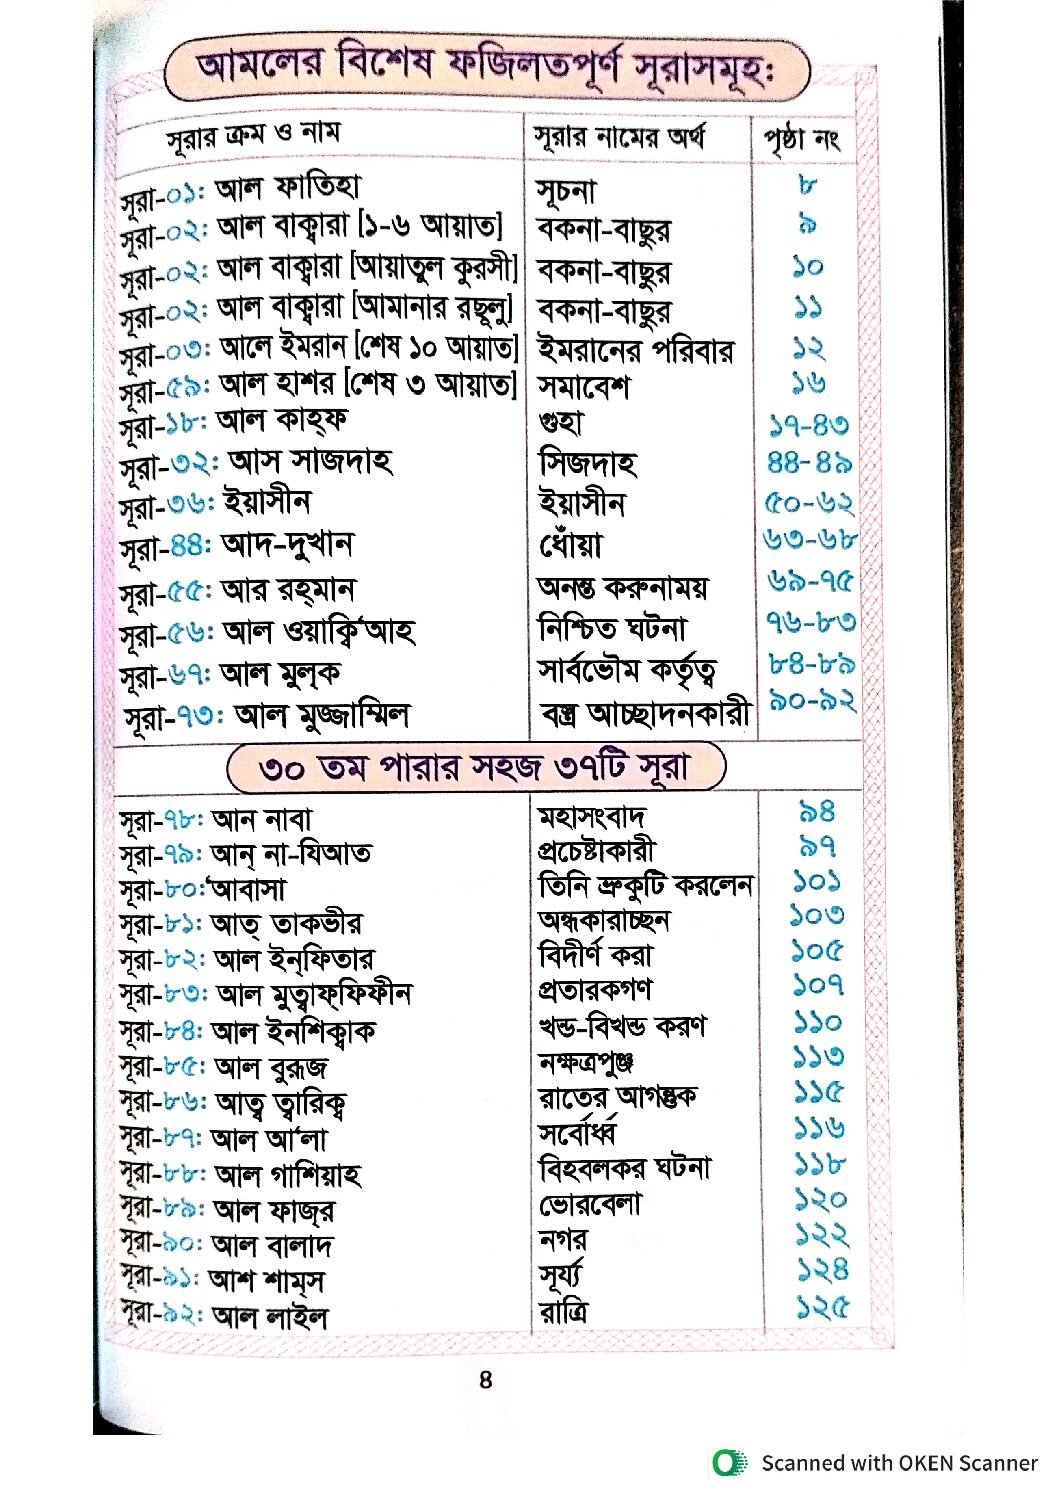 আমলের বিশেষ ফজিলতপূর্ণ সূরাসমূহ:
সূরার ক্রম ও নাম সূরার নামের অর্থ পৃষ্ঠা নং
সূরা-০১: আল ফাতিহা সূচনা ৮
সূরা-০২: আল বাক্বারা [১-৬ আয়াত] বকনা-বাছুর ৯
সূরা-০২: আল বাক্বারা [আয়াতুল কুরসী] বকনা-বাছুর ১০
সূরা-০২: আল বাক্বারা [আমানার রছূলু] বকনা-বাছুর ১১
সূরা-০৩: আলে ইমরান [শেষ ১০ আয়াত] ইমরানের পরিবার ১২
সূরা-৫৯: আল হাশর [শেষ ৩ আয়াত] সমাবেশ ১৬
সূরা-১৮: আল কাহ্ফ গুহা ১৭-৪৩
সূরা-৩২: আস সাজদাহ সিজদাহ ৪৪-৪৯
সূরা-৩৬: ইয়াসীন ইয়াসীন ৫০-৬২
সূরা-৪৪: আদ-দুখান ধোঁয়া ৬৩-৬৮
সূরা-৫৫: আর রহ্মান অনন্ত করুনাময় ৬৯-৭৫
সূরা-৫৬: আল ওয়াক্বি‘আহ নিশ্চিত ঘটনা ৭৬-৮৩
সূরা-৬৭: আল মুল্ক সার্বভৌম কর্তৃত্ব ৮৪-৮৯
সূরা-৭৩: আল মুজ্জাম্মিল বস্ত্র আচ্ছাদনকারী ৯০-৯২
৩০ তম পারার সহজ ৩৭টি সূরা
সূরা-৭৮: আন নাবা মহাসংবাদ ৯৪
সূরা-৭৯: আন্ না-যিআত প্রচেষ্টাকারী ৯৭
সূরা-৮০:‘আবাসা তিনি ভ্রুকুটি করলেন ১০১
সূরা-৮১: আত্ তাকভীর অন্ধকারাচ্ছন ১০৩
সূরা-৮২: আল ইন্ফিতার বিদীর্ণ করা ১০৫
সূরা-৮৩: আল মুত্বাফ্ফিফীন প্রতারকগণ ১০৭
সূরা-৮৪: আল ইনশিক্বাক খন্ড-বিখন্ড করণ ১১০
সূরা-৮৫: আল বুরূজ নক্ষত্রপুঞ্জ ১১৩
সূরা-৮৬: আত্ব ত্বারিক্ব রাতের আগন্তুক ১১৫
সূরা-৮৭: আল আ‘লা সর্বোর্ধ্ব ১১৬
সূরা-৮৮: আল গাশিয়াহ বিহবলকর ঘটনা ১১৮
সূরা-৮৯: আল ফাজ্র ভোরবেলা ১২০
সূরা-৯০: আল বালাদ নগর ১২২
সূরা-৯১: আশ শাম্স সূর্য্য ১২৪
সূরা-৯২: আল লাইল রাত্রি ১২৫
৪
Scanned with OKEN Scanner